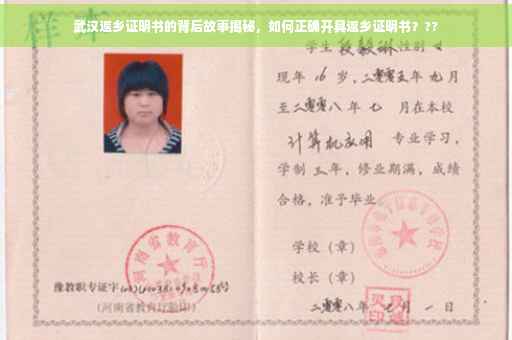 武汉返乡证明书的背后故事揭秘，如何正确开具返乡证明书？??
样本
学生 段毅琳 性别 女
现年 16 岁，二零零五年 九月
至二零零八 年 七 月在本校
计算机应用 专业学习，
学制 三 年，修业期满，成绩
合格，准予毕业
学校（章）
校长（章）
二零零八年 七 月 一 日
河南省教育厅
豫教职专证字
（河南省教育厅验印）